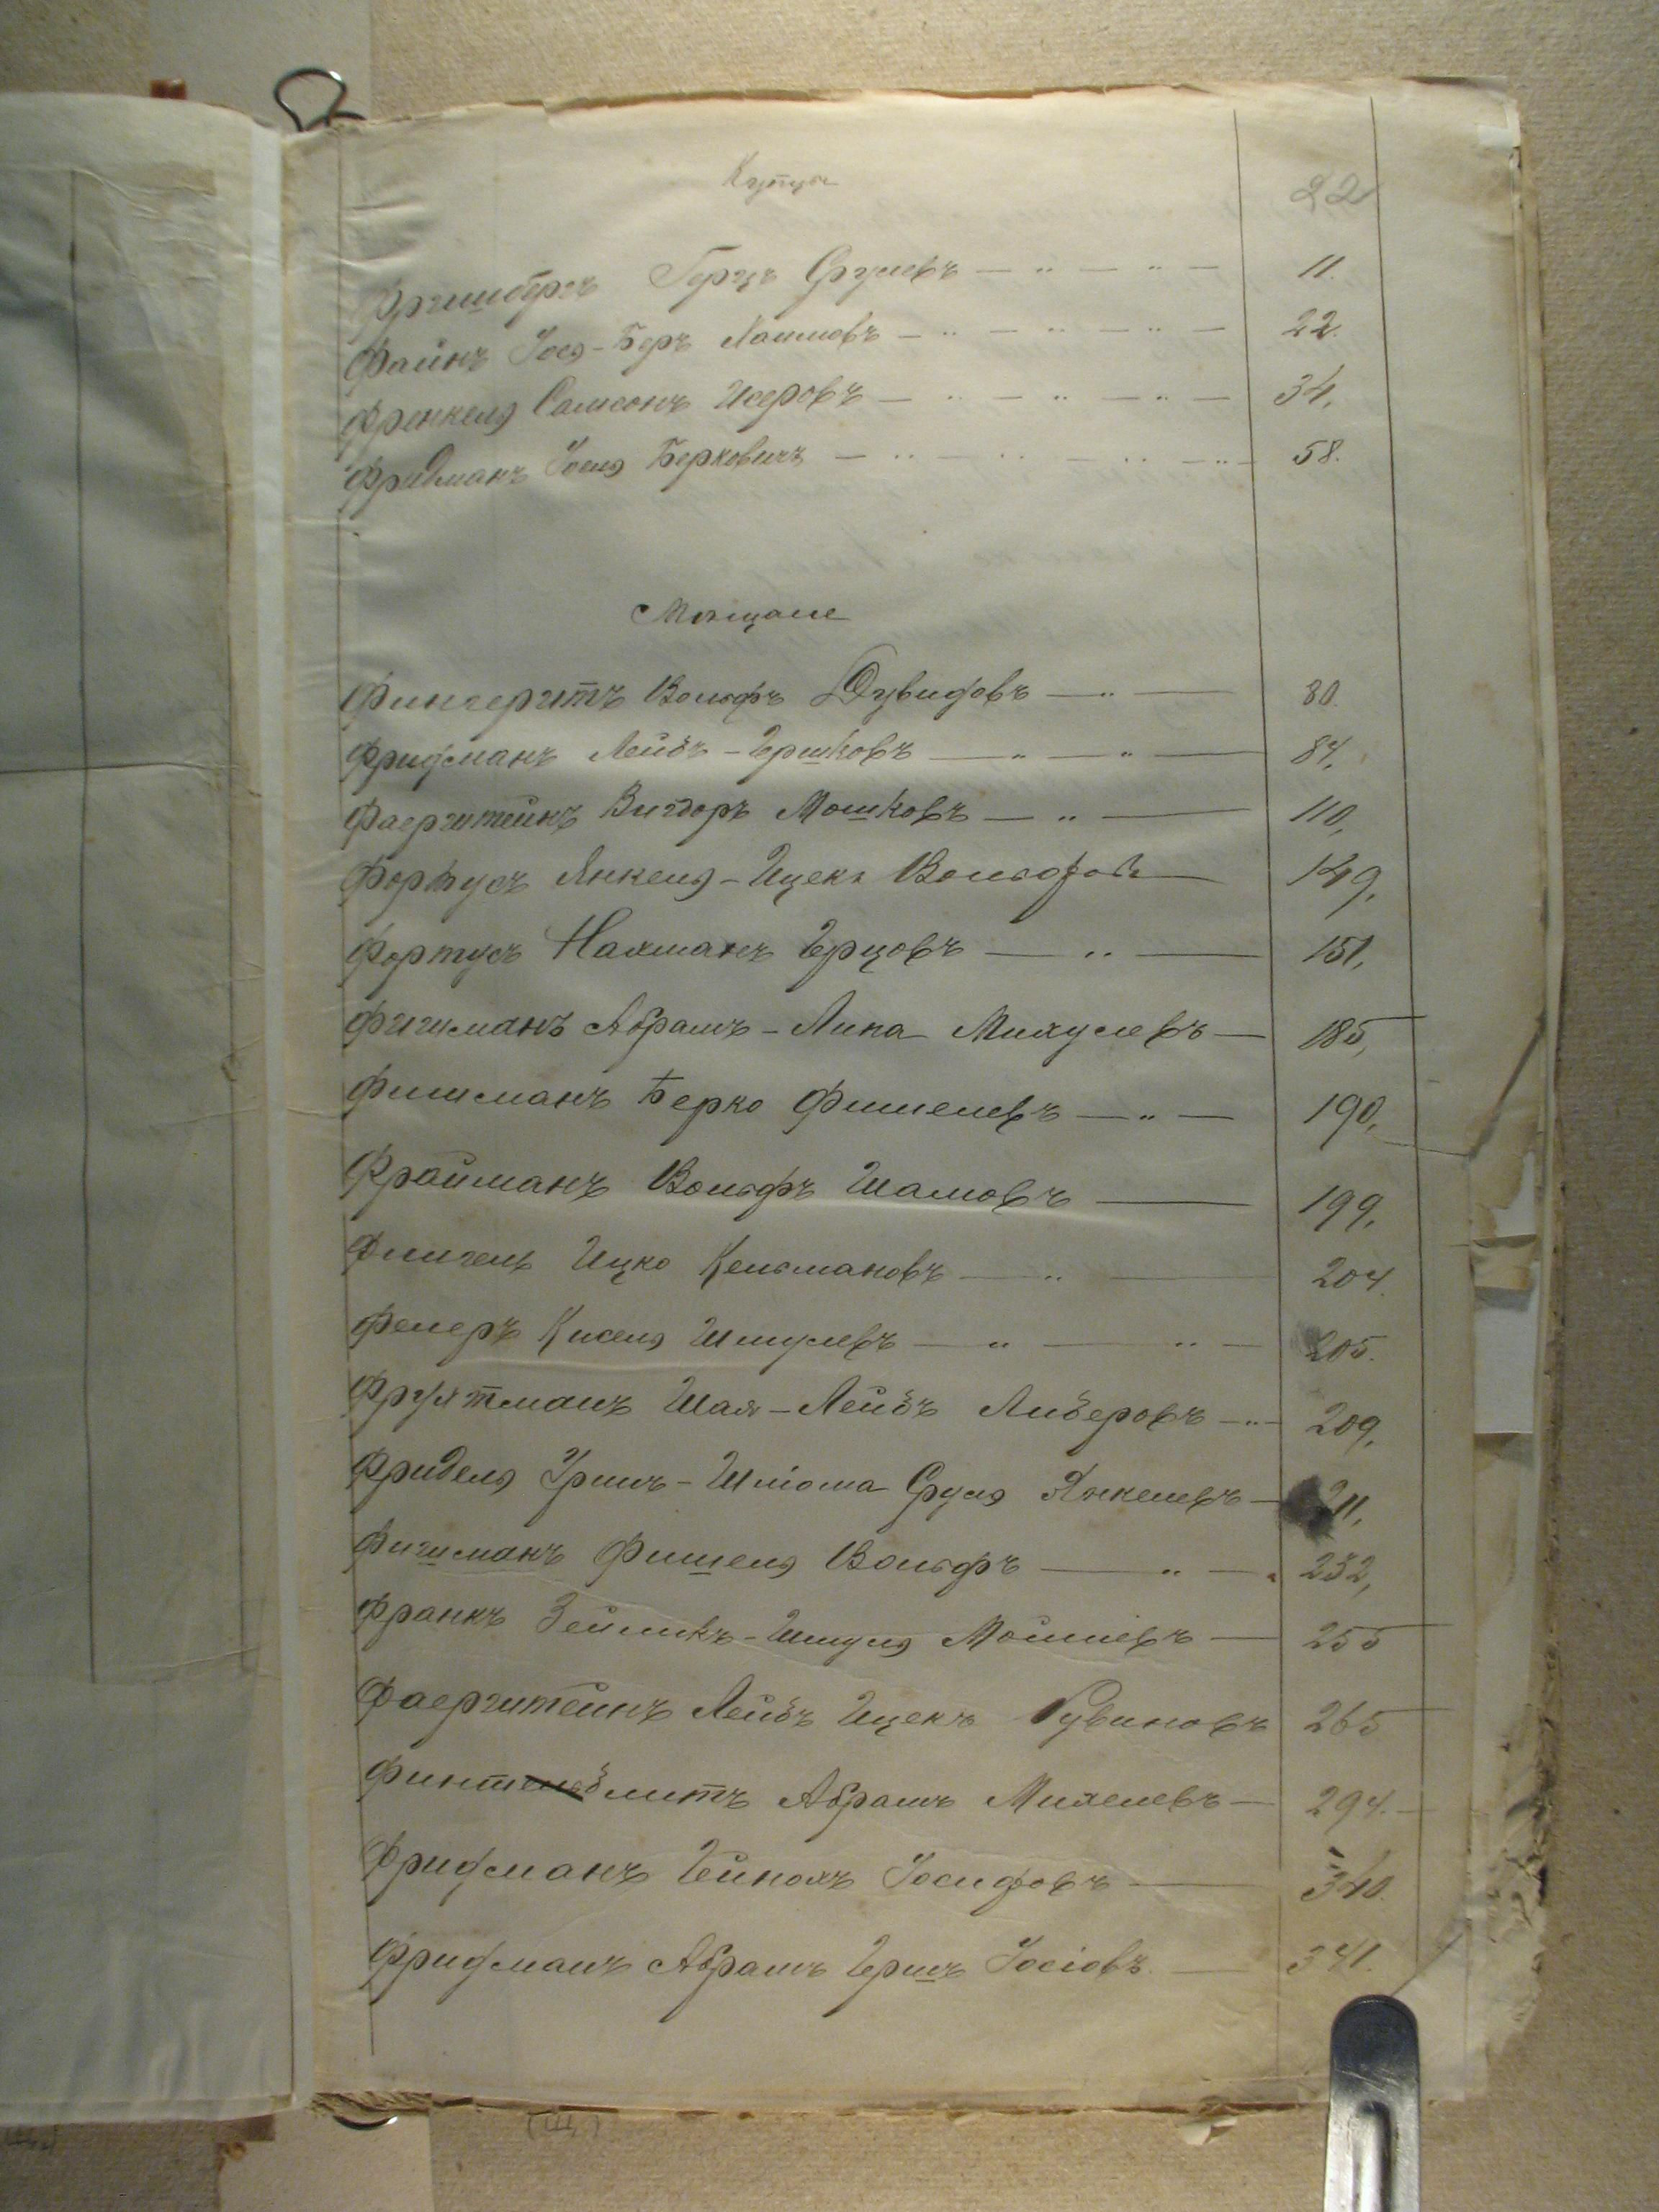 Купцы
22
Фришбергъ Герцъ Срулевъ — " — " — 11.
Файнъ Iося-Беръ Хаимовъ — " — " — " — 22.
Френкель Самсонъ Исеровъ — " — " — " — 34.
Фридманъ Iосель Берковичъ — " — " — " — " — 58.
Мѣщане
Фингерутъ Вольфъ Дувидовъ — " — 80.
Фридманъ Лейбъ-Гершковъ — " — " — 84.
Фаерштейнъ Вигдоръ Мошковъ — " — 110.
Фортусъ Янкель-Ицекъ Вольфовъ — 149.
Фортусъ Нахманъ Герцовъ — " — 151.
Фишманъ Абрамъ-Липа Михулевъ — 185,
Фишманъ Берко Фишелевъ — " — 190.
Крайманъ Вольфъ Шамовъ — 199.
Флигель Ицко Кельмановъ — " — 204.
Фелеръ Кисель Шмулевъ — " — " — 205.
Фрухтманъ Шая-Лейбъ Либеровъ — " — 209.
Фридель Гершъ-Шліома Сруль Янкелевъ — 211.
Фишманъ Фишель Вольфъ — " — 232,
Франкъ Зейликъ-Шмуль Мошіевъ — 255
Фаерштейнъ Лейбъ Ицекъ Рувиновъ 265
Абрамъ Михелевъ — 294. —
Фридманъ Гейнохъ Iосифовъ — 340.
Фридманъ Абрамъ Гершъ Iосіовъ. — 341.